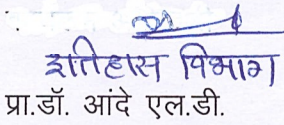 इतिहास विभाग
प्रा.डॉ. आंदे एल.डी.